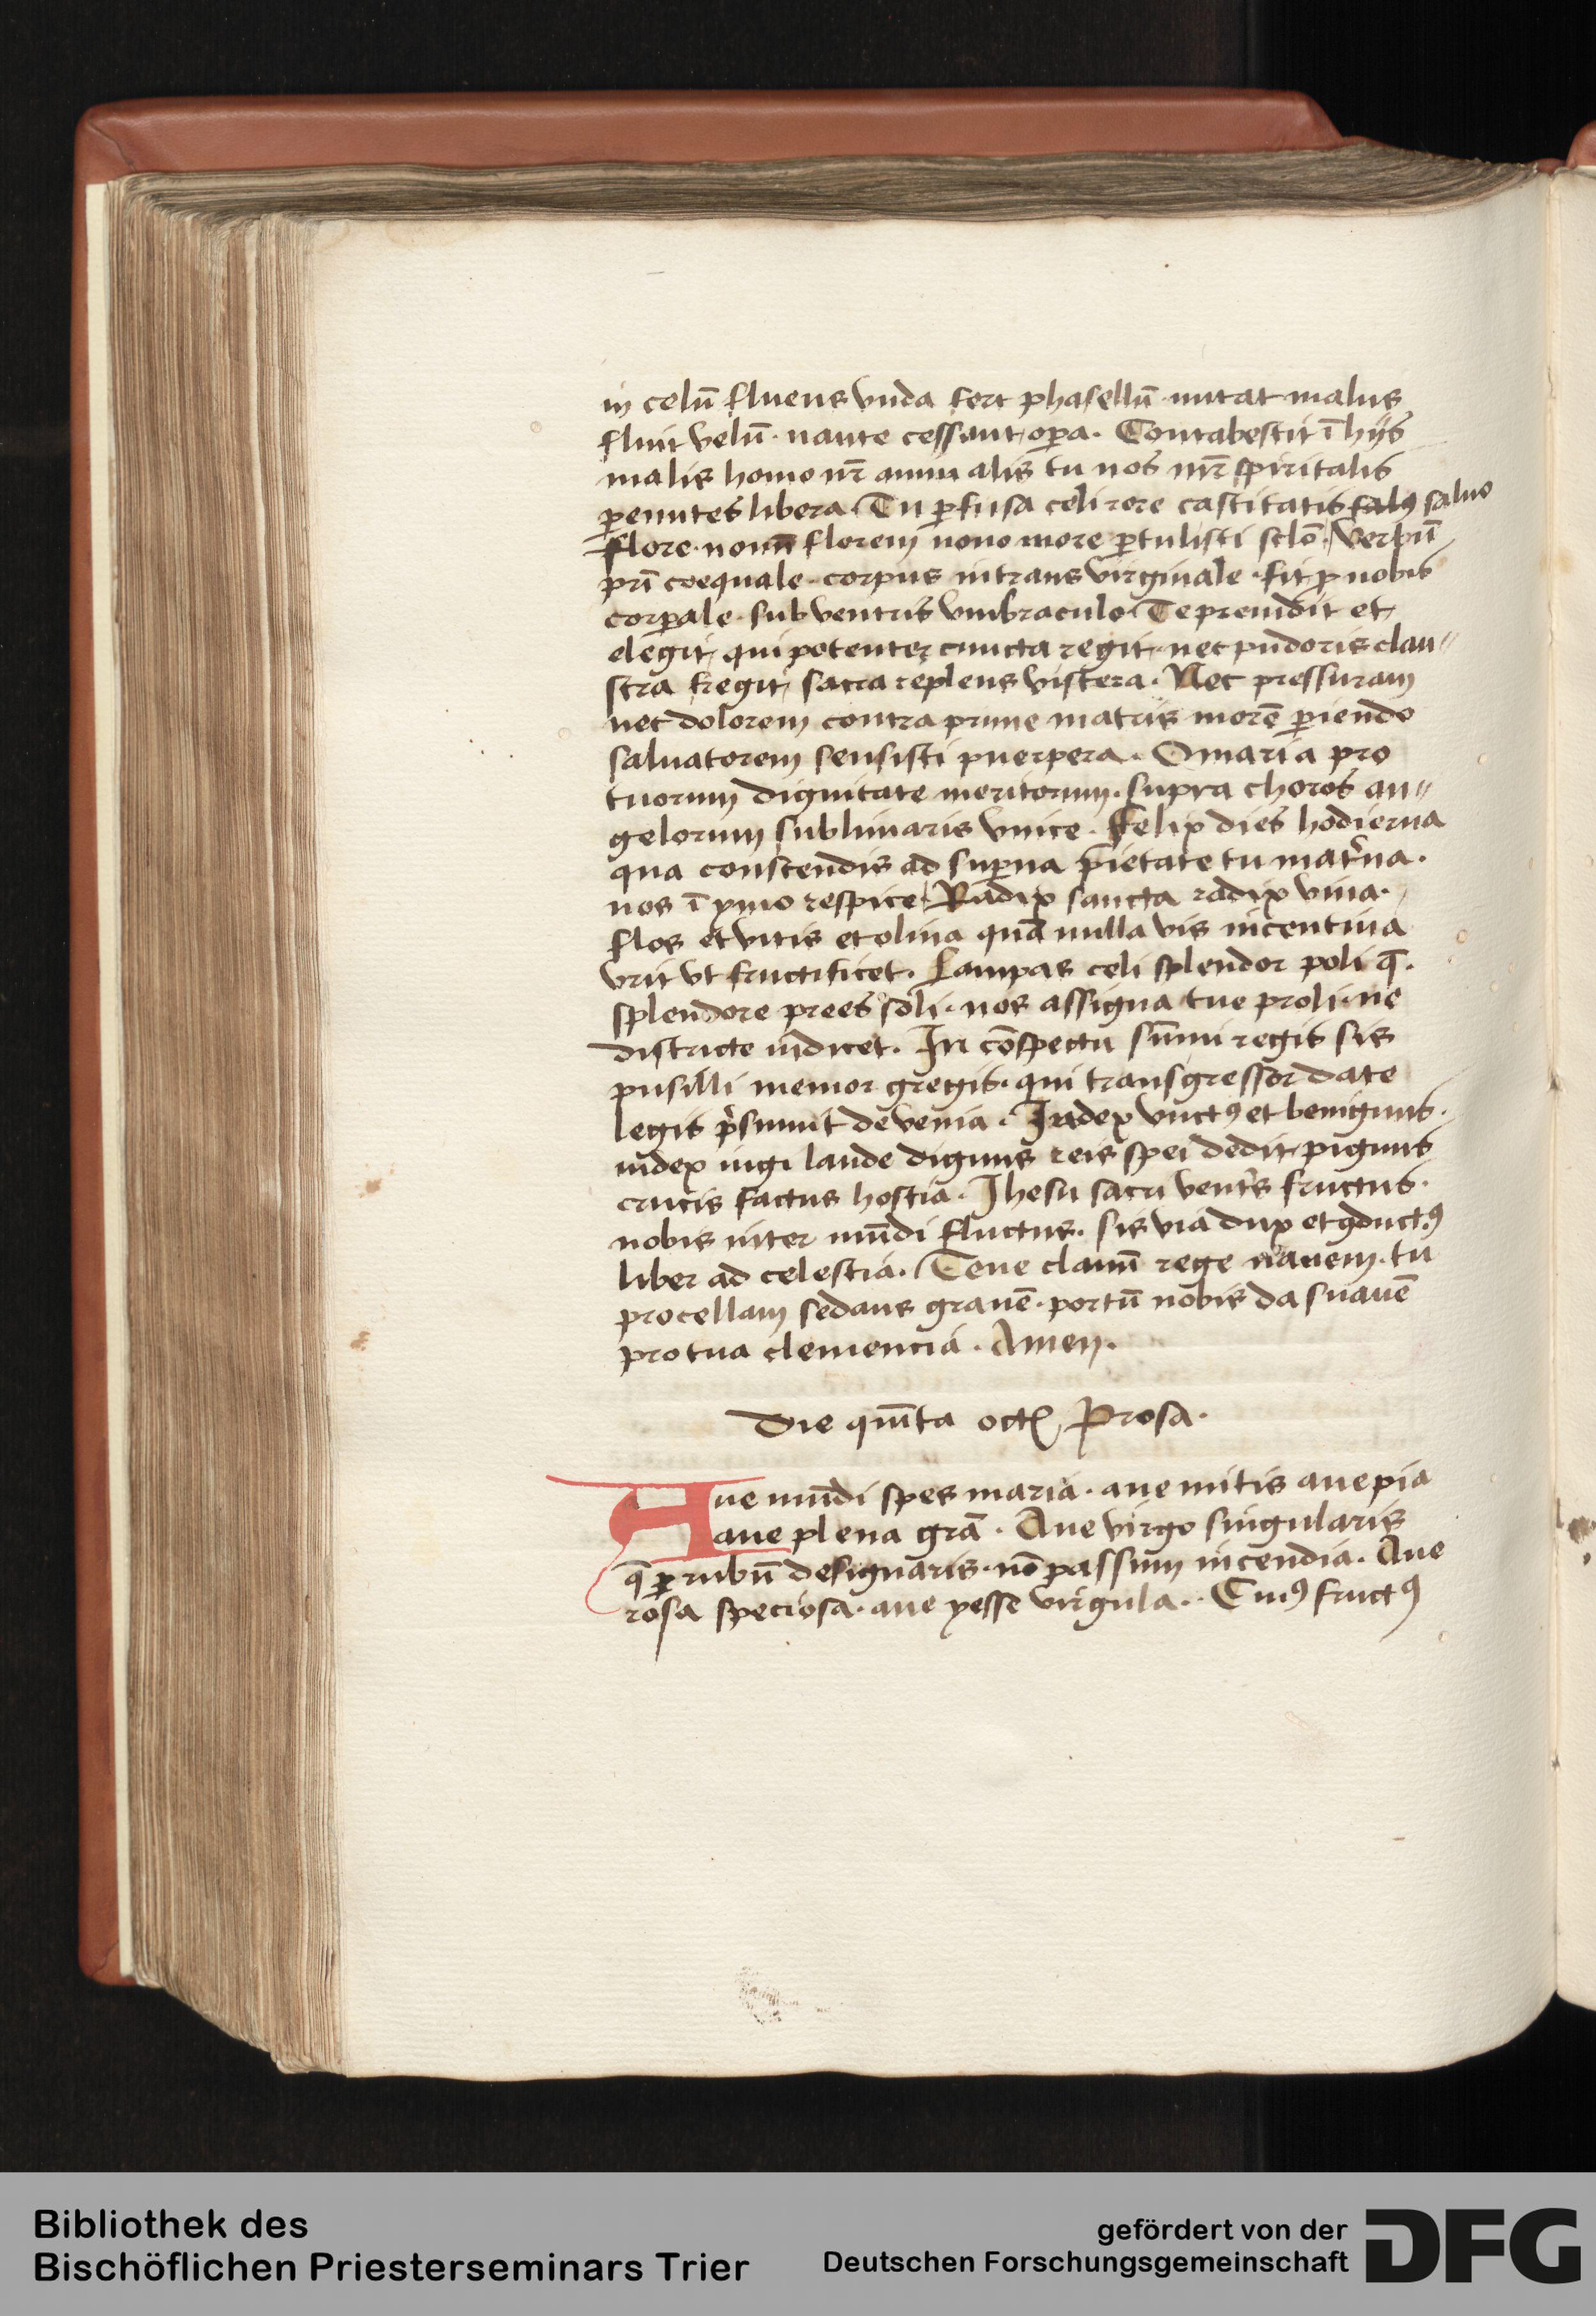 in celū fluens vnda fert phasellū · nutat malus
fluit velū · naute cessant oꝑa · Contabescit ī hijs
malis homo nr̄ animalis tu nos mr̄ spiritalis
ꝑeuntes libera · Tu ꝑfusa celi rore castitatis salꝰ saluo
flore · nouū florem nouo more ꝓtulisti sclō · Verbū
pr̄i coequale · corpus intrans virginale · fit ꝓ nobis
corꝑale · sub ventris vmbraculo · Te preuidit et
elegit, qui potenter cuncta regit, nec pudoris clau〃
stra fregit, sacra replens viscera · Nec pressuram
nec dolorem contra prime matris morē ꝑiendo
saluatorem sensisti puerpera · O maria pro
tuorum dignitate meritorum · supra choros an〃
gelorum sublimaris vnice · Felix dies hodierna
qua conscendis ad suꝑna p̄ietate tu mat̉na ·
nos ī ymo respice · Radix sancta radix viua ·
flos et vitis et oliua quā nulla vis incentiua
vrit vt fructificet · Lampas celi splendor poli q̄ ·
splendore prees soli · nos assigna tue proli · ne
districte iudicet · In cōspectu sūmi regis sis
pusilli memor gregis · qui transgressor date
legis p̉sumit de venia · Iudex vnctꝰ et benignus ·
iudex iugi laude dignus reis spei dedit pignus
crucis factus hostia · Ihesu sacri vent̉s fructus ·
nobis inter mūdi fluctus · sis via dux et ꝯductꝰ
liber ad celestia · Tene clauū rege nauem · tu
procellam sedans grauē · portū nobis da suauē
pro tua clemencia · Amen ·
Die quīta oct Prosa ·
Aue mūdi spes maria · aue mitis aue pia
aue plena grā · Aue virgo singularis
q̄ ꝑ rubū designaris · nō passum incendia · Aue
rosa speciosa · aue yesse virgula · Cuiꝰ fructꝰ
Bibliothek des
Bischöflichen Priesterseminars Trier
gefördert von der
Deutschen Forschungsgemeinschaft
DFG